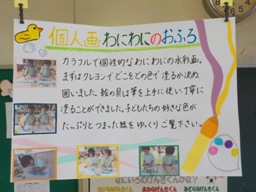 個人画 わにわにのおふろ
カラフルで個性的なわにわにの水彩画。
まずはクレヨンでどことどの色で塗るか決め
囲いました。絵の具は筆を上手に使い丁寧に
塗ることができました。子どもたちの好きな色が
たっぷりとつまった絵をゆっくりご覧下さい。